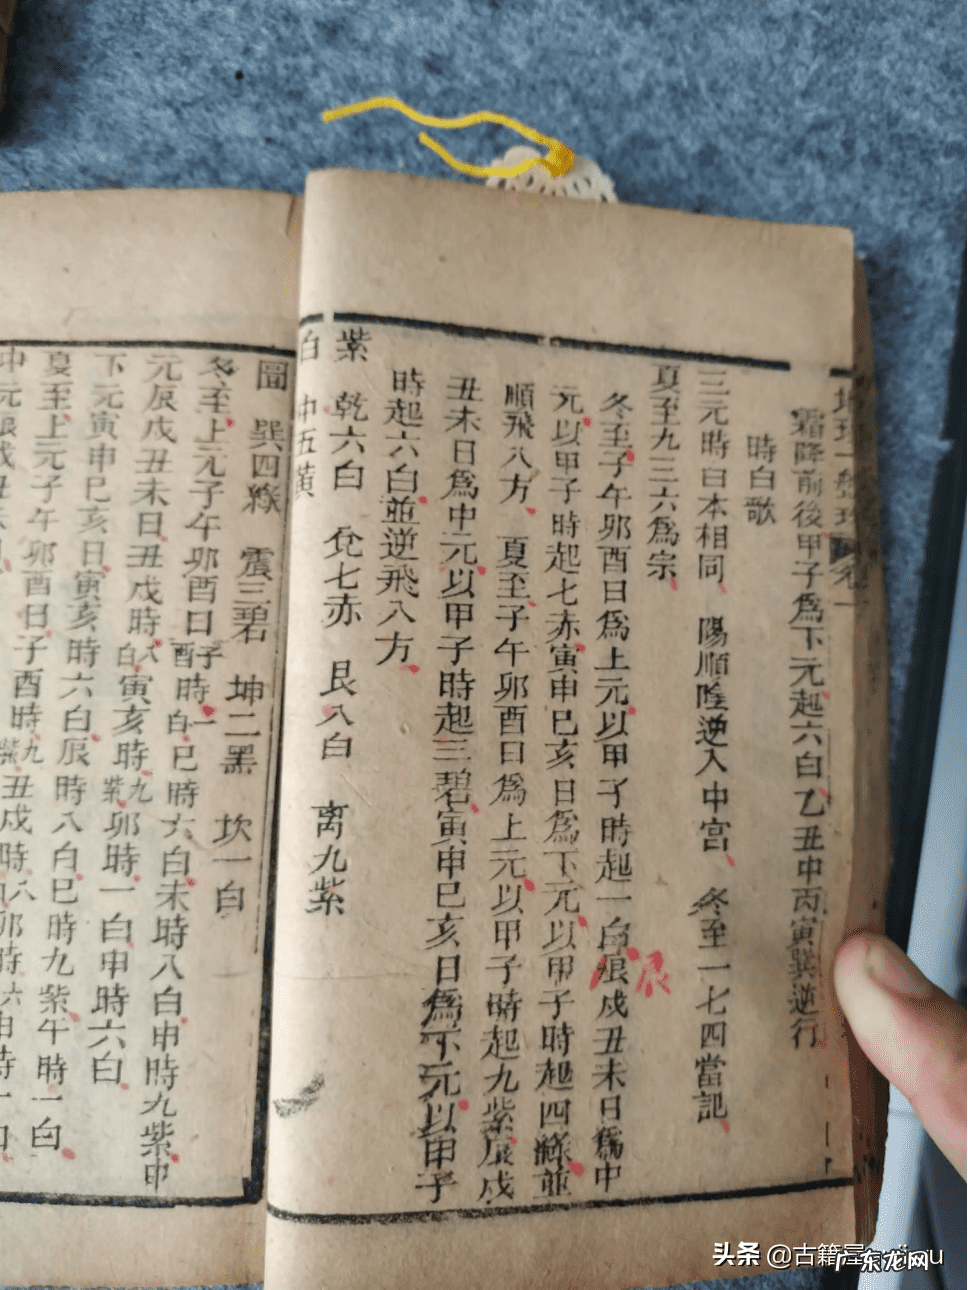 霜降前後甲子爲下元起六白乙丑中丙寅巽逆行
時白歌
三元時白本相同 陽順陰逆入中宮 冬至一七四當記
夏至九三六爲宗
冬至子午卯酉日爲上元以甲子時起一白辰戍丑未日爲中
元以甲子時起七赤寅申巳亥日爲下元以甲子時起四綠並
順飛八方 夏至子午卯酉日爲上元以甲子時起九紫辰戍
丑未日爲中元以甲子時起三碧寅申巳亥日爲下元以甲子
時起六白並逆飛八方
紫 乾六白 兌七赤 艮八白 离九紫
白 中五黃
圖 巽四綠 震三碧 坤二黑 坎一白
冬至上元子午卯酉日子酉時一白巳時六白未時八白申時九紫中
元辰戍丑未日丑戍時八白寅亥時九紫卯時一白申時六白
下元寅申巳亥日寅亥時六白辰時八白巳時九紫午時一白
夏至上元子午卯酉日子酉時九紫丑戍時八卯時六申時一白
头条 @古籍屋
广东龙网